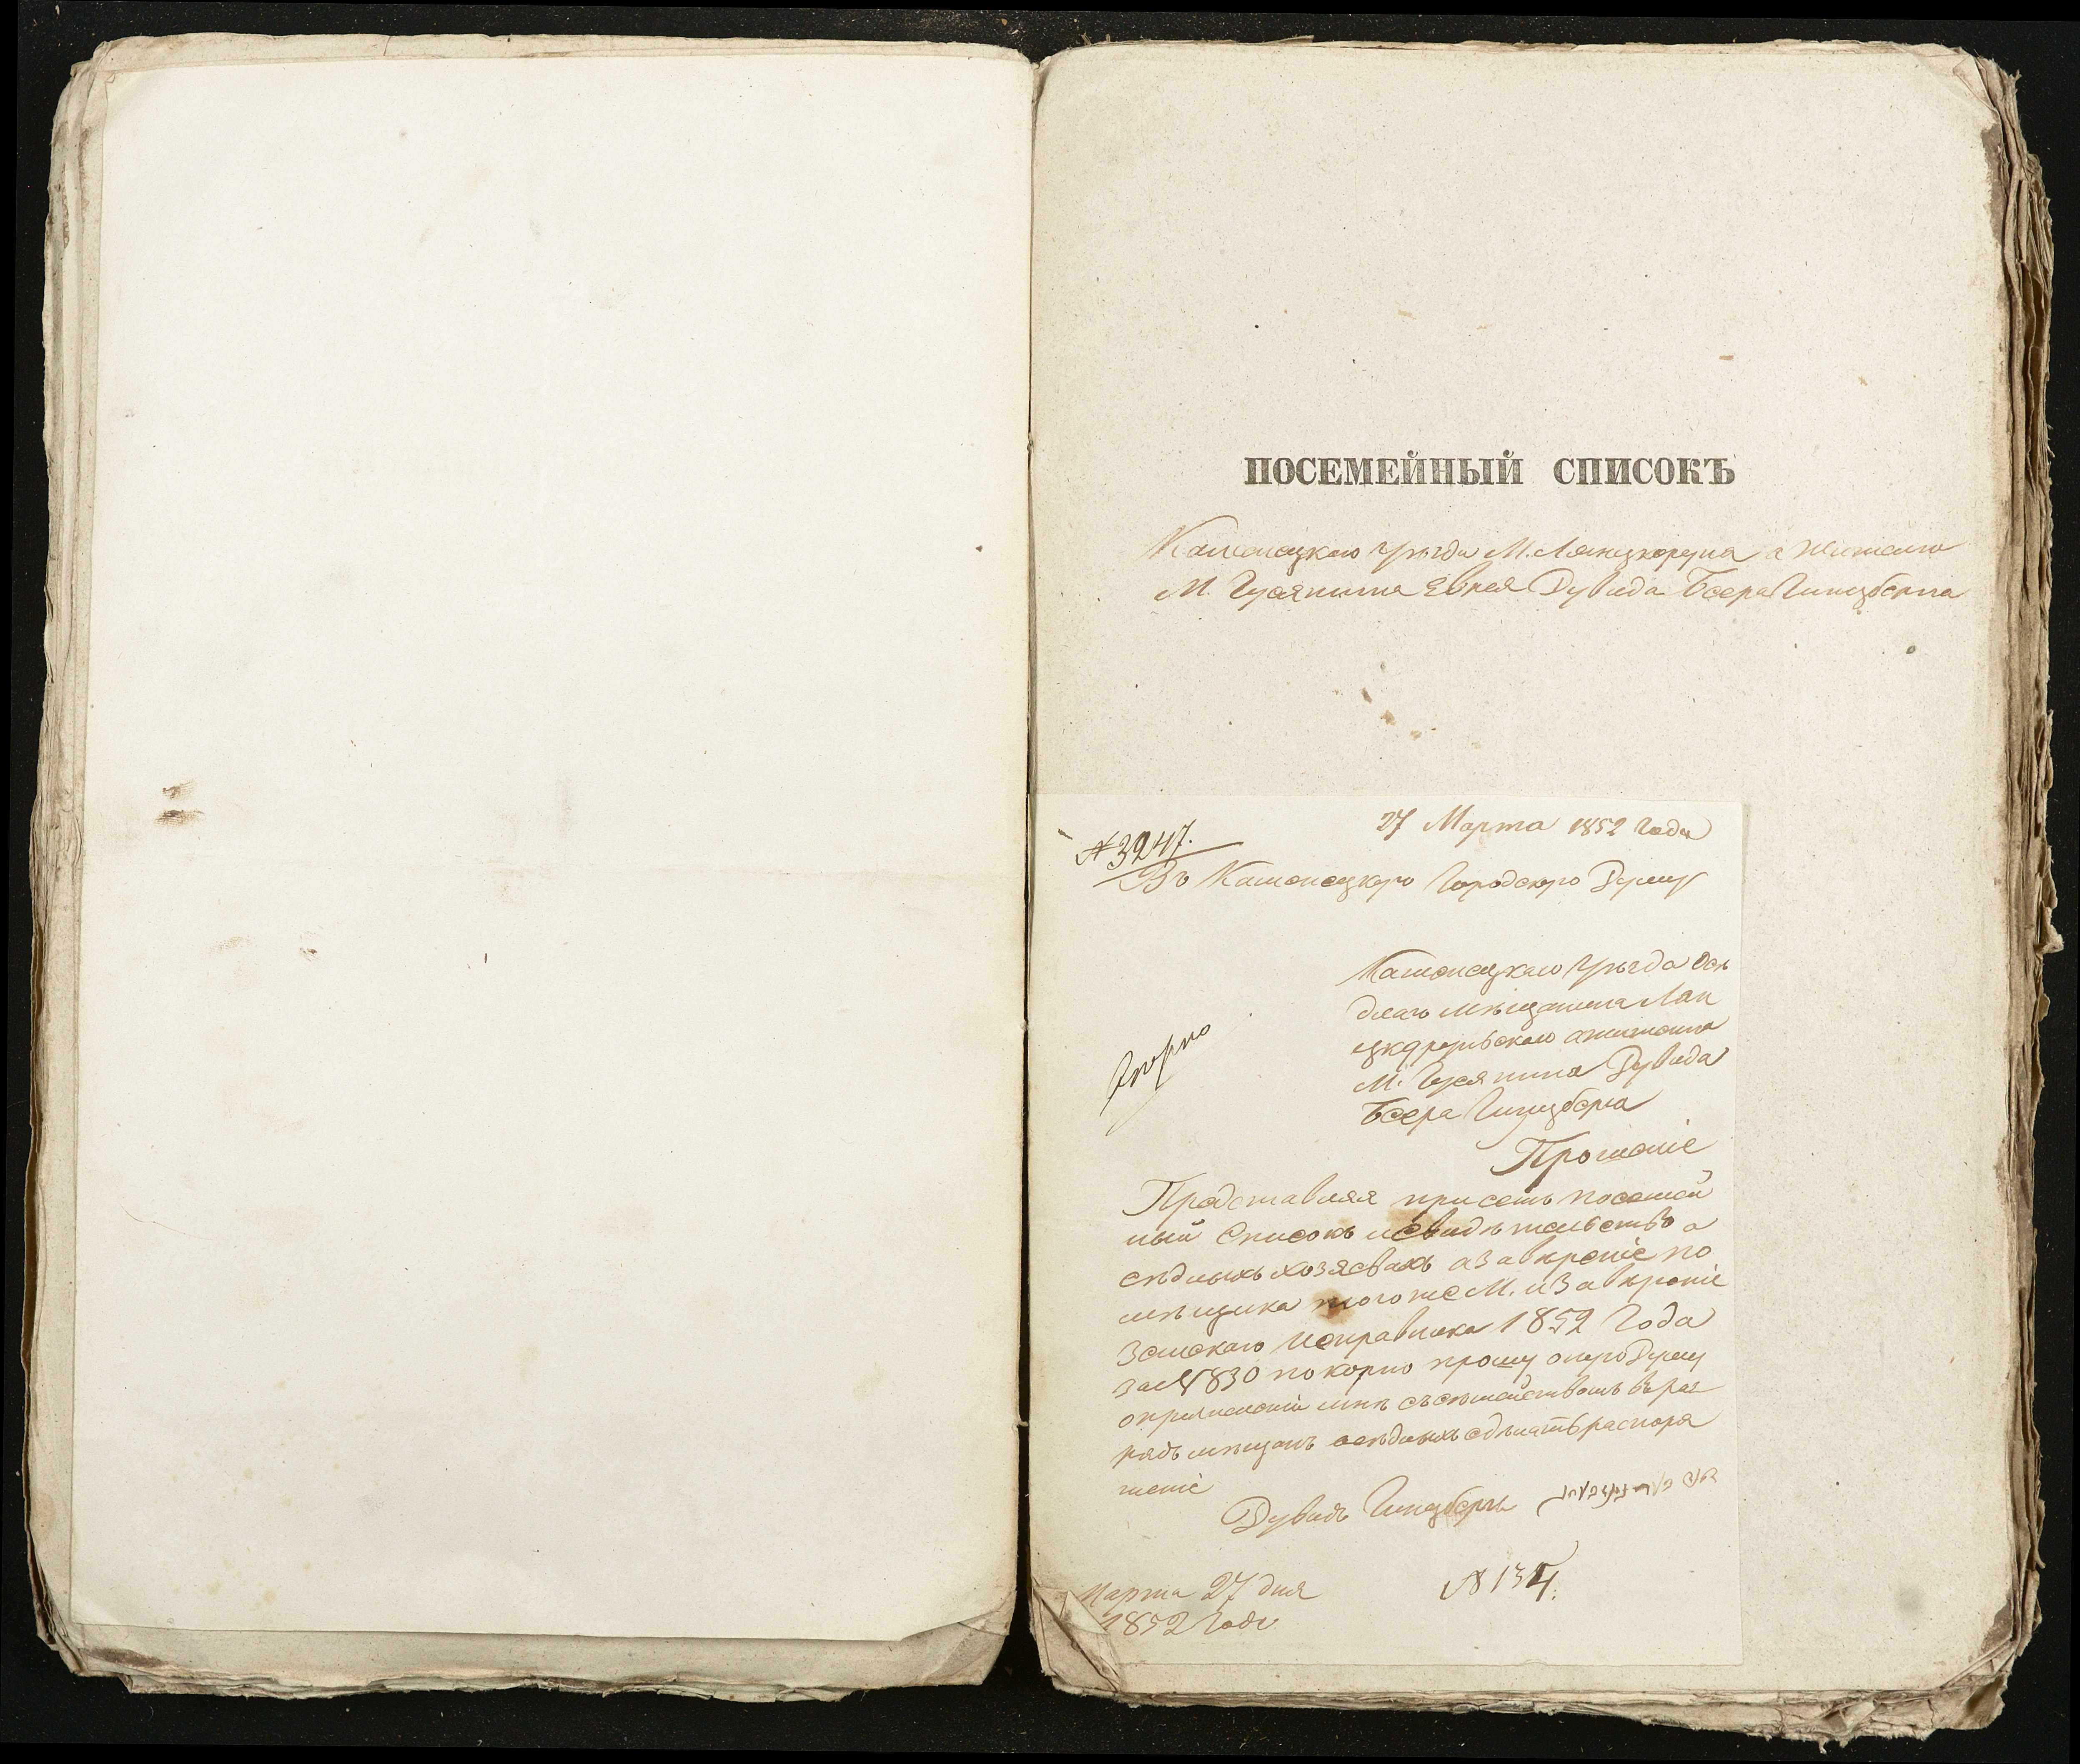 ПОСЕМЕЙНЫЙ СПИСОКЪ
Каменецкаго уѣзда М. Лянцкоруна а жителя
М. Гусятина Еврея Дувида Беера Гинцберга
27 Марта 1852 года
№ 3247.
Въ Каменецкую Городскую Думу
Каменецкаго уѣзда осѣ
длаго мѣщанина Лан
цкорунскаго а жителя
М. Гусятина Дувида
Беера Гинцберга
Прошеніе
Представляя присемъ посемей
ный Списокъ и свидѣтельство о
сѣдлыхъ хозяевахъ а завѣреніе по
мѣщика того же М. и завѣреніе
Земскаго исправника 1852 Года
за № 830 покорно прошу оную Думу
опричисленіи мнѣ съ семействомъ въ раз
рядъ мѣщанъ осѣдлыхъ сдѣлать распоря
женіе
Дувидъ Гинцбергъ
№ 134.
Марта 27 дня
1852 Года